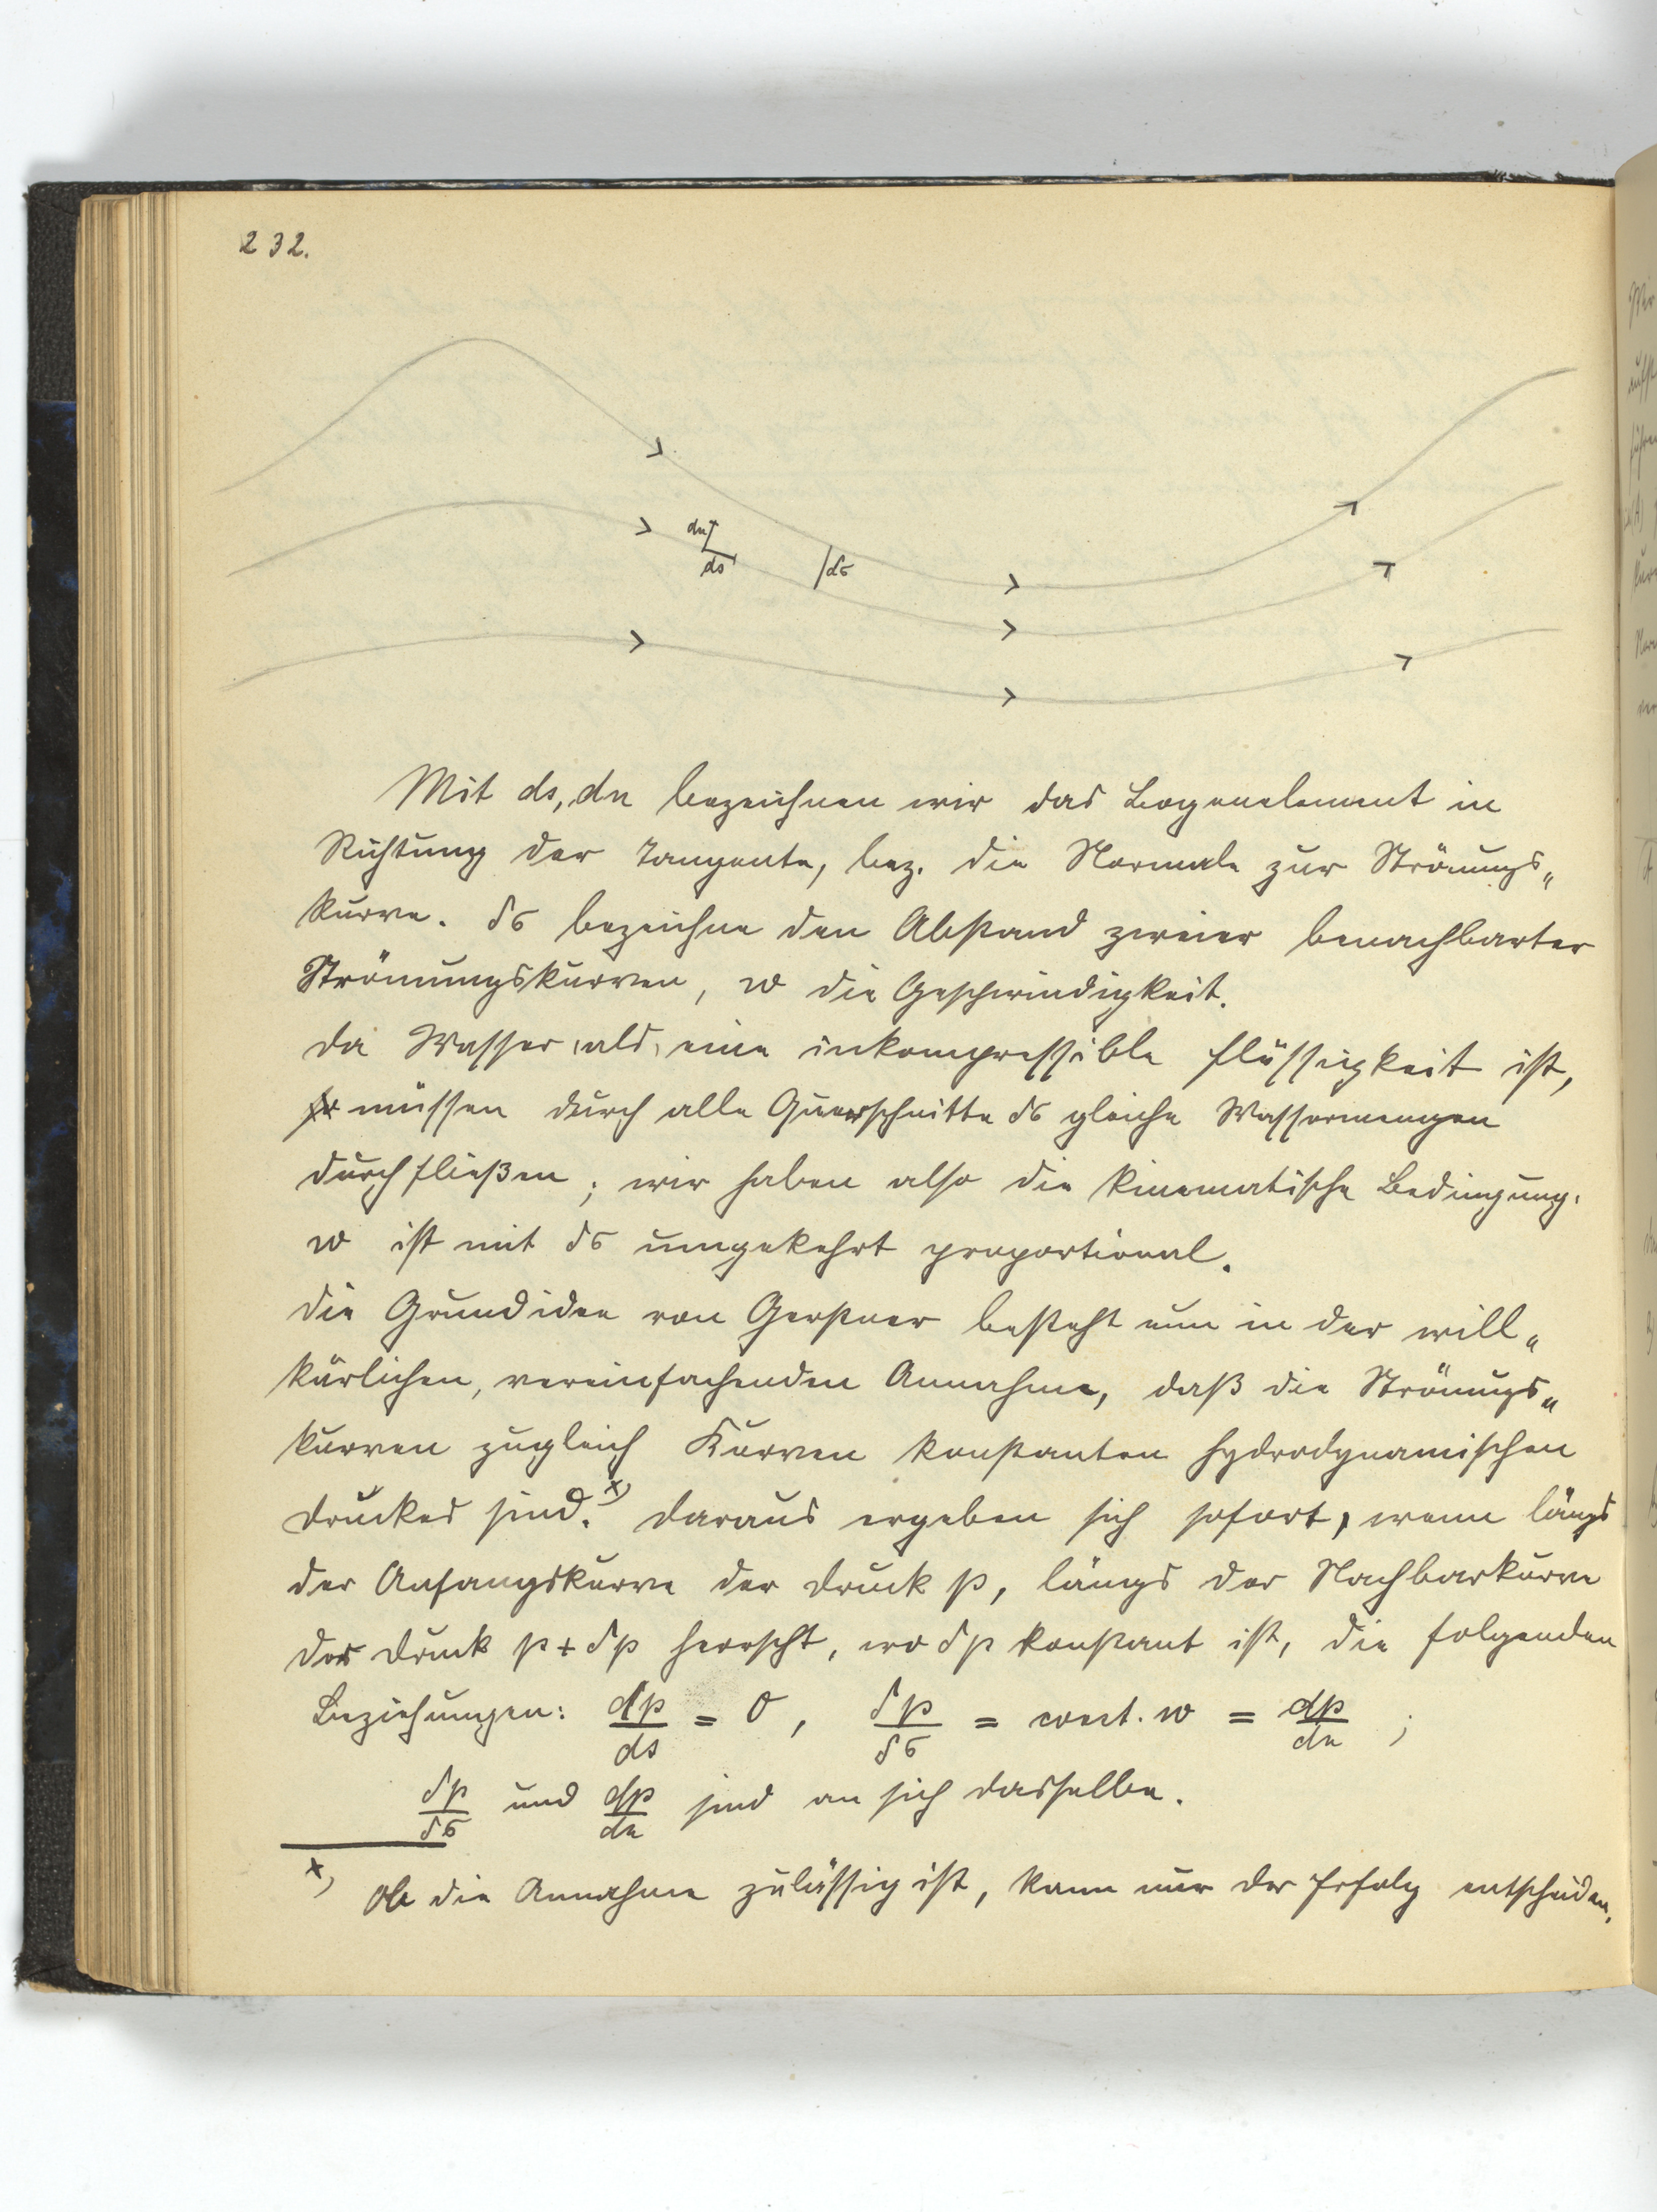 232.
dn
ds
δσ
Mit ds, dn bezeichnen wir das Bogenelement in
Richtung der Tangente, bez. die Normale zur Strömungs„
kurve. δσ bezeichne den Abstand zweier benachbarter
Strömungskurven, w die Geschwindigkeit.
Da Wasser, als, eine inkompressible Flüssigkeit ist,
müssen durch alle Querschnitte δσ gleiche Wassermengen
durchfließen; wir haben also die kinematische Bedingung.
w ist mit δσ umgekehrt proportional.
Die Grundidee von Gerstner besteht nun in der will„
kürlichen, vereinfachenden Annahme, daß die Strömungs„
kurven zugleich Kurven konstanten hydrodynamischen
Druckes sind.ˣ⁾ Daraus ergeben sich sofort, wenn längs
der Anfangskurve der Druck p, längs der Nachbarkurve
der Druck p + δp herrscht, wo δp konstant ist, die folgenden
Beziehungen: dp/ds = 0, δp/δσ = const. w = dp/dn ;
δp/δσ und dp/dn sind an sich dasselbe.
x) Ob die Annahme zulässig ist, kann nur der Erfolg entscheiden.